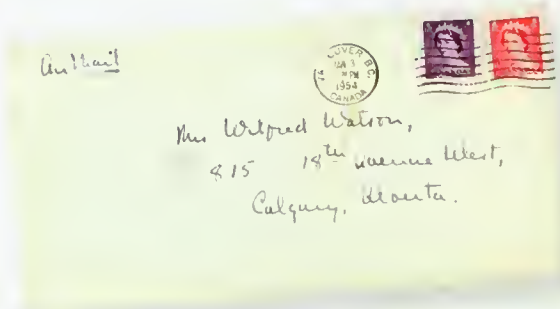 Air Mail
COUVER B.C.
3
PM
1954
CANADA
Mrs Wilfred Watson,
815 18th Avenue West,
Calgary, Alberta.